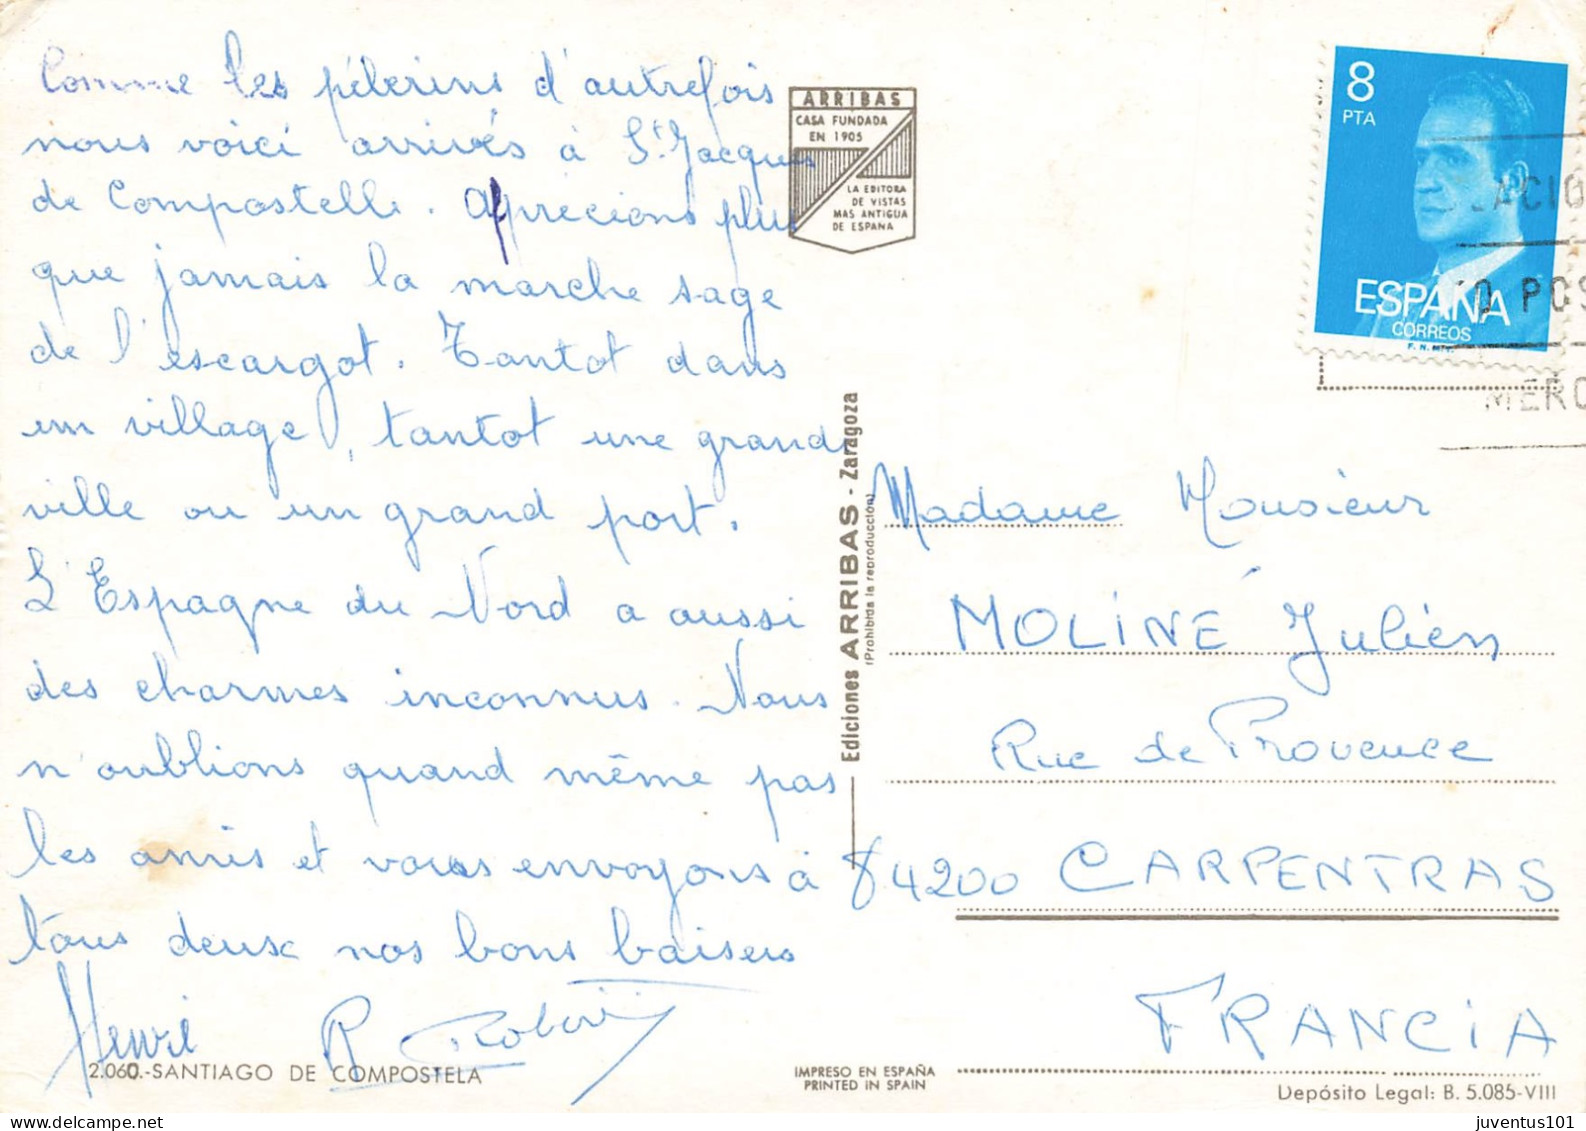 Comme les pélerins d'autrefois
nous voici arrivés à St Jacques
de Compostelle. Apprecions plus
que jamais la marche sage
de l'escargot. Tantot dans
un village, tantot une grande
ville ou un grand port.
L'Espagne du Nord a aussi
des charmes inconnus. Nous
n'oublions quand même pas
les amis et vous envoyons à
tous deux nos bons baisers
Henri
2.060.-SANTIAGO DE COMPOSTELA
ARRIBAS
CASA FUNDADA
EN 1905
LA EDITORA
DE VISTAS
MAS ANTIGUA
DE ESPAÑA
Ediciones ARRIBAS - Zaragoza
(Prohibida la reproducción)
IMPRESO EN ESPAÑA
PRINTED IN SPAIN
8
PTA
ESPAÑA
CORREOS
F. N. M. T.
O POS
MERC
Madame Monsieur
MOLINÉ Julien
Rue de Provence
84200 CARPENTRAS
FRANCIA
Depósito Legal: B. 5.085-VIII
juventus101